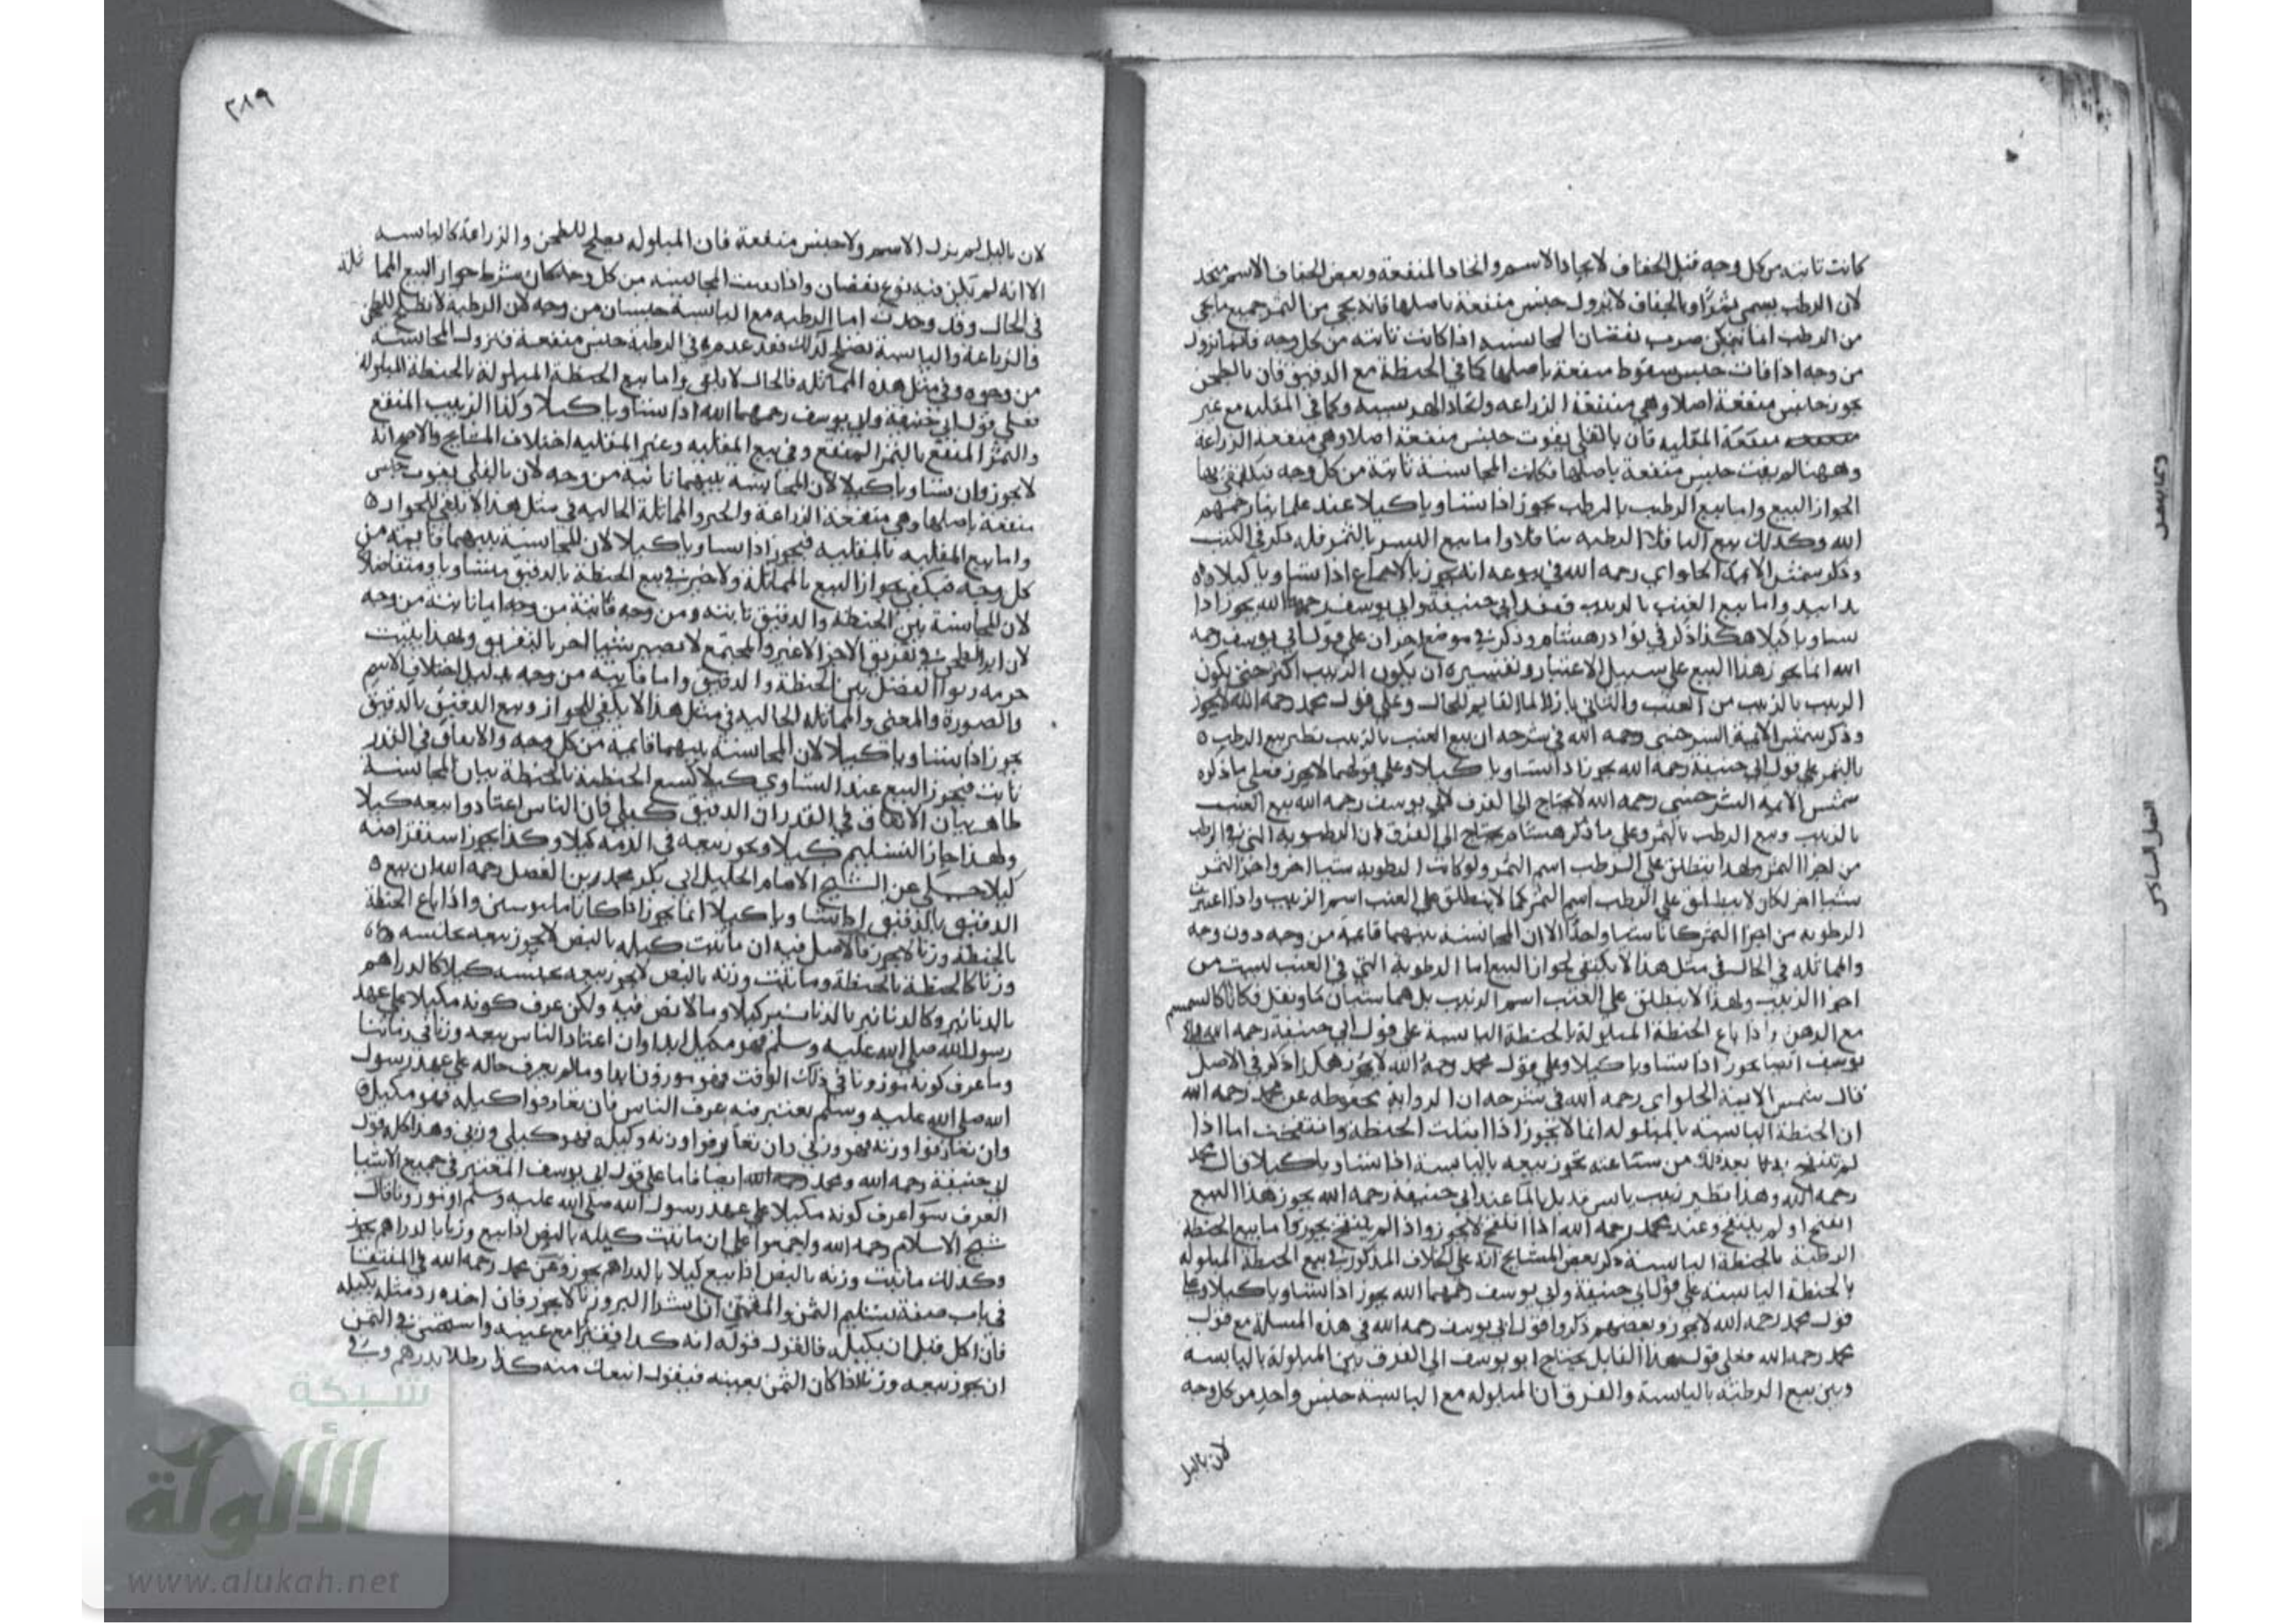 كانت ثابتة من كل وجه قبل الجفاف لاتحاد الاسم واتحاد المنفعة وبعض الجفاف الاسم متحد
لان الرطب يسمى تمرا وبالجفاف لا يزول جنس منفعة باصلها فانه يجي من التمر جميع ما يجي
من الرطب انما يتمكن ضرب نقصان المجانسة اذا كانت ثابتة من كل وجه فانما تزول
من وجه اذا فات جنس منفعة باصلها كما في الحنطة مع الدقيق فان بالطحن
جنس منفعة اصلا وهي منفعة الزراعة وكما في المقلية مع غير
المقلية فان بالقلي يفوت جنس منفعة اصلا وهي منفعة الزراعة
وههنا لم يفت جنس منفعة باصلها فكانت المجانسة ثابتة من كل وجه
واما بيع الرطب بالرطب يجوز اذا تساويا كيلا عند علمائنا رحمهم
الله وكذلك بيع الباقلا الرطبة واما بيع البسر بالتمر
وذكر شمس الايمة الحلواي رحمه الله في انه يجوز بالاجماع اذا تساويا كيلا
يدا بيد واما بيع العنب بالزبيب فعند ابي حنيفة وابي يوسف رحمهما الله يجوز اذا
تساويا كيلا هكذا ذكر في نوادر هشام وذكر في موضع اخر ان على قول ابي يوسف رحمه
الله انما يجوز هذا البيع على سبيل الاعتبار وتفسيره ان يكون الزبيب اكثر حتى يكون
الزبيب بالزبيب من العنب والباقي بازا الما القايم للحال وعلى قول محمد رحمه الله لا يجوز
وذكر شمس الايمة السرخسي رحمه الله في شرحه ان بيع العنب بالزبيب نظير بيع الرطب
بالتمر على قول ابي حنيفة رحمه الله يجوز اذا تساويا كيلا وعلى قولهما لا يجوز فعلى ما ذكره
شمس الايمة السرخسي رحمه الله لا يحتاج الى الفرق لابي يوسف رحمه الله بيع العنب
بالزبيب وبيع الرطب بالتمر وعلى ما ذكر هشام يحتاج الى الفرق ان الرطوبة التي في الرطب
من اجزا التمر ولهذا ينطلق على الرطب اسم التمر ولو كانت الرطوبة شيا اخر واجزا التمر
شيا اخر لكان لا ينطلق على الرطب اسم التمر كما لا ينطلق على العنب اسم الزبيب واذا اعتبرت
الرطوبة من اجزا التمر كانا شيا واحدا الا ان المجانسة بينهما قايمة من وجه دون وجه
والمماثلة في الحال في مثل هذا لا يكتفي لجواز البيع اما الرطوبة التي في العنب ليست من
اجزا الزبيب ولهذا لا ينطلق على العنب اسم الزبيب بل هما شيان كالسمسم
مع الدهن واذا باع الحنطة المبلولة بالحنطة اليابسة على قول ابي حنيفة رحمه الله وابي
يوسف انه يجوز اذا تساويا كيلا وعلى قول محمد رحمه الله لا يجوز هكذا ذكر في الاصل
قال شمس الايمة الحلواي رحمه الله في شرحه ان الرواية محفوظة عن محمد رحمه الله
ان الحنطة اليابسة بالمبلولة انما لا يجوز اذا ابتلت الحنطة وانتفخت اما اذا
لم تنتفخ من ساعته يجوز بيعه باليابسة اذا تساويا كيلا قال محمد
رحمه الله وهذا نظير زبيب يابس قد بل بالما عند ابي حنيفة رحمه الله يجوز هذا البيع
انتفخ او لم ينتفخ وعند محمد رحمه الله اذا انتفخ لا يجوز واذا لم ينتفخ يجوز واما بيع الحنطة
الرطبة بالحنطة اليابسة ذكر بعض المشايخ انه على الخلاف المذكور في بيع الحنطة المبلولة
بالحنطة اليابسة على قول ابي حنيفة وابي يوسف رحمهما الله يجوز اذا تساويا كيلا وعلى
قول محمد رحمه الله لا يجوز وبعضهم ذكروا قول ابي يوسف رحمه الله في هذه المسلة مع قول
محمد رحمه الله فعلى قول هذا القايل يحتاج ابو يوسف الى الفرق بين المبلولة باليابسة
وبين بيع الرطبة باليابسة والفرق ان المبلولة مع اليابسة جنس واحد من كل وجه
لان بالبل
٢٨٩
لان بالبل لم يزل الاسم ولا جنس منفعة فان المبلولة تصلح للطحن والزراعة كاليابسة
الا انه تمكن فيه نوع نقصان واذا بقيت المجانسة من كل وجه كان شرط جواز البيع المماثلة
في الحال وقد وجدت اما الرطبة مع اليابسة جنسان من وجه لان الرطبة لا تصلح للطحن
والزراعة واليابسة تصلح لذلك فقد عدم في الرطبة جنس منفعة فتزول المجانسة
من وجه وفي مثل هذه المماثلة في الحال لا تكفي واما بيع الحنطة المبلولة بالحنطة المبلولة
فعلى قول ابي حنيفة وابي يوسف رحمهما الله اذا تساويا كيلا وكذا الزبيب المنقع
والتمر المنقع بالتمر المنقع وفي بيع المقلية وغير المقلية اختلاف المشايخ والاصح انه
لا يجوز وان تساويا كيلا لان المجانسة بينهما ثابتة من وجه لان بالقلي يفوت جنس
منفعة باصلها وهي منفعة الزراعة والمماثلة الحالية في مثل هذا لا تكفي للجواز
واما بيع المقلية بالمقلية فيجوز اذا تساويا كيلا لان المجانسة بينهما قايمة من
كل وجه فيكفي لجواز البيع بالمماثلة ولا خير في بيع الحنطة بالدقيق متساويا ومتفاضلا
لان المجانسة بين الحنطة والدقيق ثابتة من وجه فايتة من وجه اما ثابتة من وجه
لان اثر الطحن في تفريق الاجزا لا غير والمجتمع لا يصير شيا اخر بالتفريق ولهذا يثبت
حرمة ربوا الفضل بين الحنطة والدقيق واما فايتة من وجه بدليل اختلاف الاسم
والصورة والمعنى والمماثلة الحالية في مثل هذا لا تكفي للجواز وبيع الدقيق بالدقيق
يجوز اذا تساويا كيلا لان المجانسة بينهما قايمة من كل وجه والاتفاق في القدر
ثابت فيجوز البيع عند التساوي كيلا كبيع الحنطة بالحنطة بيان المجانسة
ظاهر بيان الاتفاق في القدر ان الدقيق كيلي فان الناس اعتادوا بيعه كيلا
ولهذا جاز التسليم كيلا ويجوز بيعه في الذمة كيلا وكذا يجوز استقراضه
كيلا حكي عن الشيخ الامام الجليل ابي بكر محمد بن الفضل رحمه الله ان بيع
الدقيق بالدقيق اذا تساويا كيلا انما يجوز اذا كانا مكبوسين واذا باع الحنطة
بالحنطة وزنا لا يجوز فالاصل فيه ان ما ثبت كيله بالنص لا يجوز بيعه بجنسه
وزنا كالحنطة بالحنطة وما ثبت وزنه بالنص لا يجوز بيعه بجنسه كيلا كالدراهم
بالدنانير وكالدنانير بالدنانير كيلا وما لا نص فيه ولكن عرف كونه مكيلا على عهد
رسول الله صلى الله عليه وسلم فهو مكيل ابدا وان اعتاد الناس بيعه وزنا في زماننا
وما عرف كونه موزونا في ذلك الوقت فهو موزون ابدا وما لم يعرف حاله على عهد رسول
الله صلى الله عليه وسلم يعتبر فيه عرف الناس فان تعارفوا كيله فهو مكيل
وان تعارفوا وزنه فهو وزني وان تعارفوا وزنه وكيله فهو كيلي وزني وهذا كله قول
ابي حنيفة رحمه الله ومحمد رحمه الله ايضا فاما على قول ابي يوسف المعتبر في جميع الاشيا
العرف سوا عرف كونه مكيلا على عهد رسول الله صلى الله عليه وسلم او موزونا قال
شيخ الاسلام رحمه الله واجمعوا على ان ما ثبت كيله بالنص اذا بيع وزنا بالدراهم يجوز
وكذلك ما ثبت وزنه بالنص اذا بيع كيلا بالدراهم يجوز وعن محمد رحمه الله في المنتقى
في باب صفة تسليم الثمن والمثمن ان شرا البر وزنا لا يجوز فان اخذه رد مثله بكيله
فان اكل قبل ان يكيله فالقول قوله انه كذا قفيزا مع يمينه واستحسن في الثمن
ان يجوز بيعه وزنا اذا كان الثمن بعينه فيقول ابيعك منه كذا رطلا بدرهم
شبكة
الألوكة
www.alukah.net